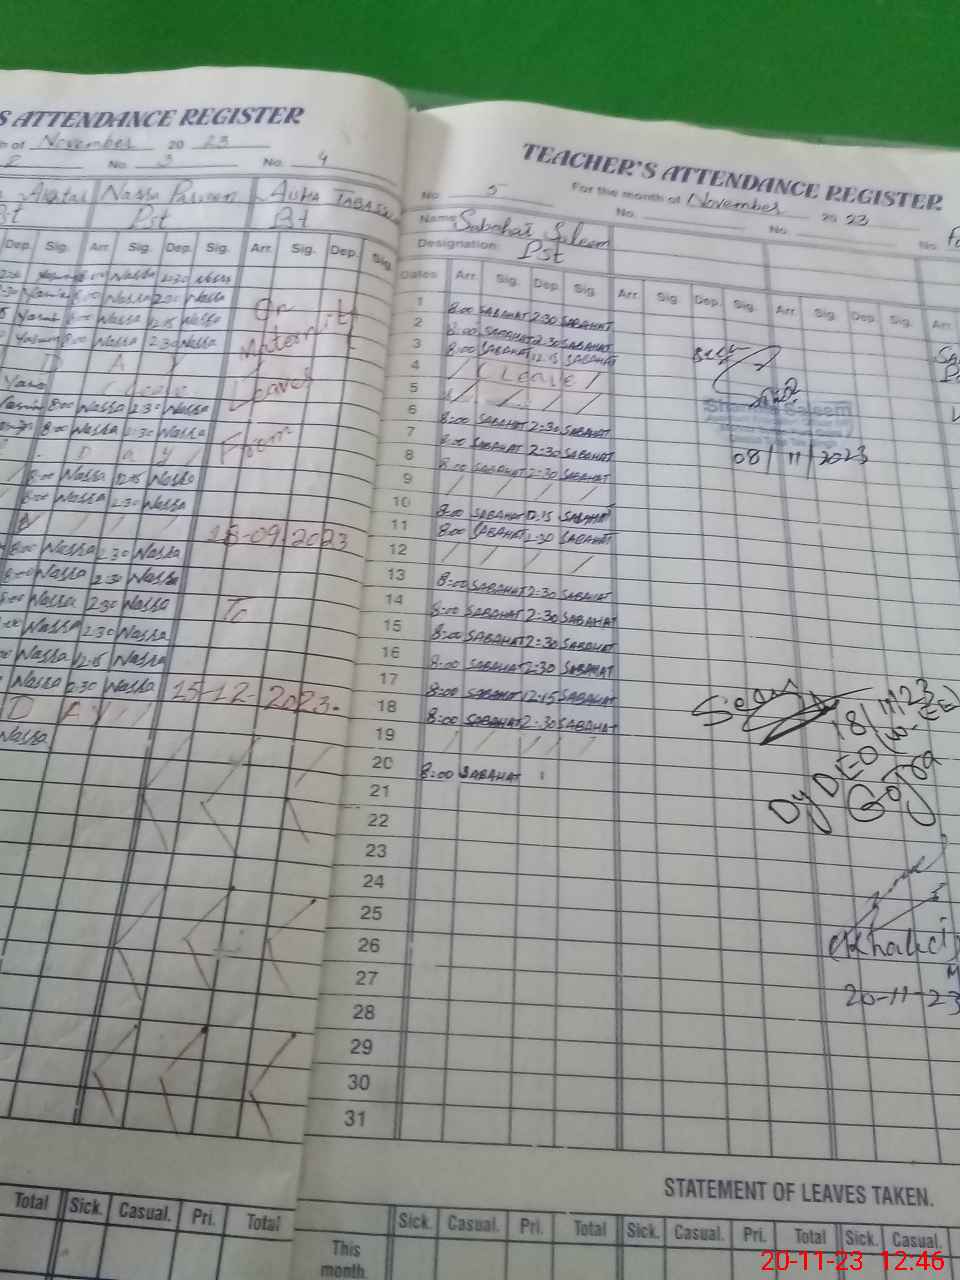 S ATTENDANCE REGISTER
of November 20 23
No. 3 No. 4
Nassa Parveen AISHA TABASS
Pst Pst
Dep. Sig. Arr. Sig. Dep. Sig. Arr. Sig. Dep. Sig.
8:00 Nassa 2:30 Nassa
8:00 Nassa 2:30 Nassa
8:00 Nassa 12:15 Nassa
8:00 Nassa 2:30 Nassa
On
Maternity
D A Y
Leave
Leaves
8:00 Nassa 2:30 Nassa
8:00 Nassa 2:30 Nassa
From
D a y
8:00 Nassa 12:15 Nassa
8:00 Nassa 2:30 Nassa
18-09-2023
8:00 Nassa 2:30 Nassa
8:00 Nassa 2:30 Nassa
8:00 Nassa 2:30 Nassa
To
Nassa 2:30 Nassa
Nassa 12:15 Nassa
Nassa 2:30 Nassa
15-12-2023.
D A Y
Nassa
Total Sick. Casual. Pri. Total
TEACHER'S ATTENDANCE REGISTER
For the month of November 20 23
No. 5 No. No. No.
Name Sabahat Saleem
Designation: Pst
Dates Arr. Sig. Dep. Sig. Arr. Sig. Dep. Sig. Arr. Sig. Dep. Sig. Arr.
1 8:00 SABAHAT 2:30 SABAHAT
2 8:00 SABAHAT 2:30 SABAHAT
3 8:00 SABAHAT 12:15 SABAHAT
4 / ( Leave /
5
6 8:00 SABAHAT 2:30 SABAHAT
7 8:00 SABAHAT 2:30 SABAHAT
8 8:00 SABAHAT 2:30 SABAHAT
9
10 8:00 SABAHAT 12:15 SABAHAT
11 8:00 SABAHAT 2:30 SABAHAT
12
13 8:00 SABAHAT 2:30 SABAHAT
14 8:00 SABAHAT 2:30 SABAHAT
15 8:00 SABAHAT 2:30 SABAHAT
16 8:00 SABAHAT 2:30 SABAHAT
17 8:00 SABAHAT 12:15 SABAHAT
18 8:00 SABAHAT 2:30 SABAHAT
19
20 8:00 SABAHAT
21
22
23
24
25
26
27
28
29
30
31
Saleem
08/11/2023
Seen
18/11/23
Dy DEO (W-EE)
Gojra
20-11-23
STATEMENT OF LEAVES TAKEN.
Sick. Casual. Pri. Total Sick. Casual. Pri. Total Sick. Casual.
This
month.
20-11-23 12:46